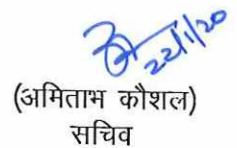 22/1/20
(अमिताभ कौशल)
सचिव